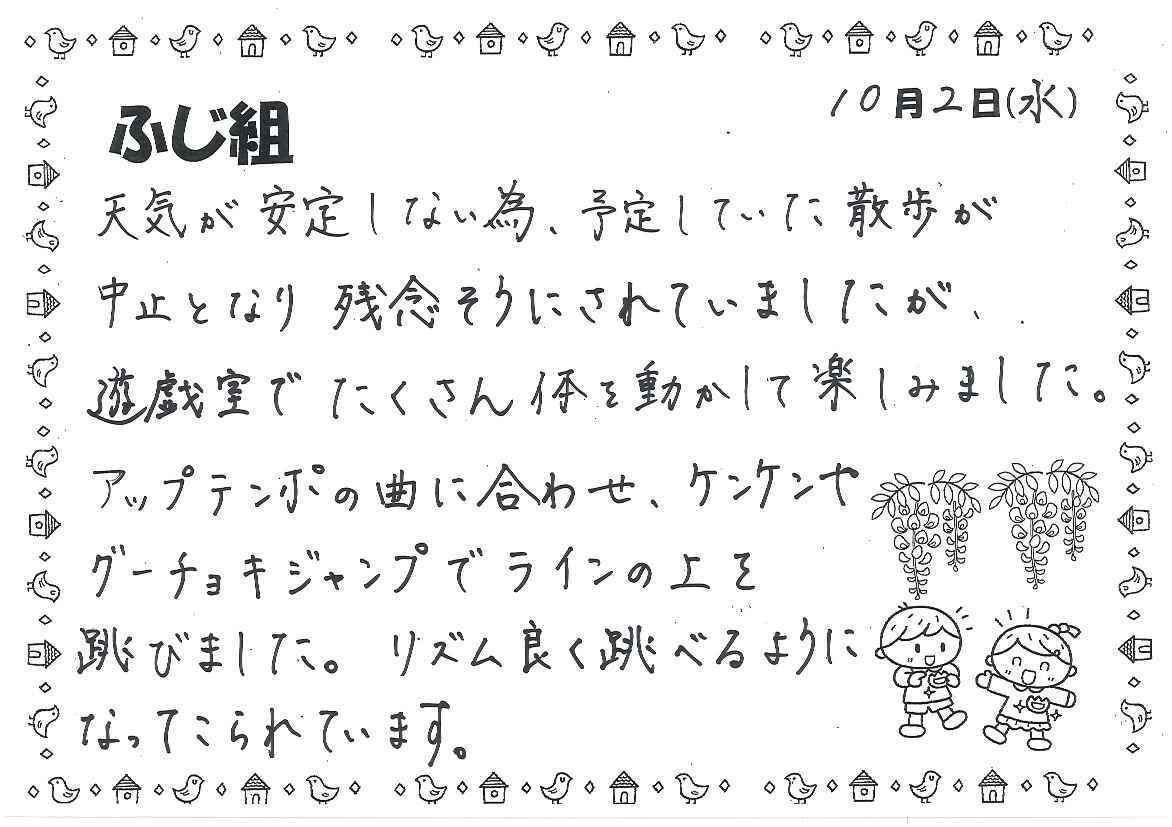 10月2日(水)
ふじ組
天気が安定しない為、予定していた散歩が
中止となり残念そうにされていましたが、
遊戯室でたくさん体を動かして楽しみました。
アップテンポの曲に合わせ、ケンケンや
グーチョキジャンプでラインの上を
跳びました。リズム良く跳べるように
なってこられています。